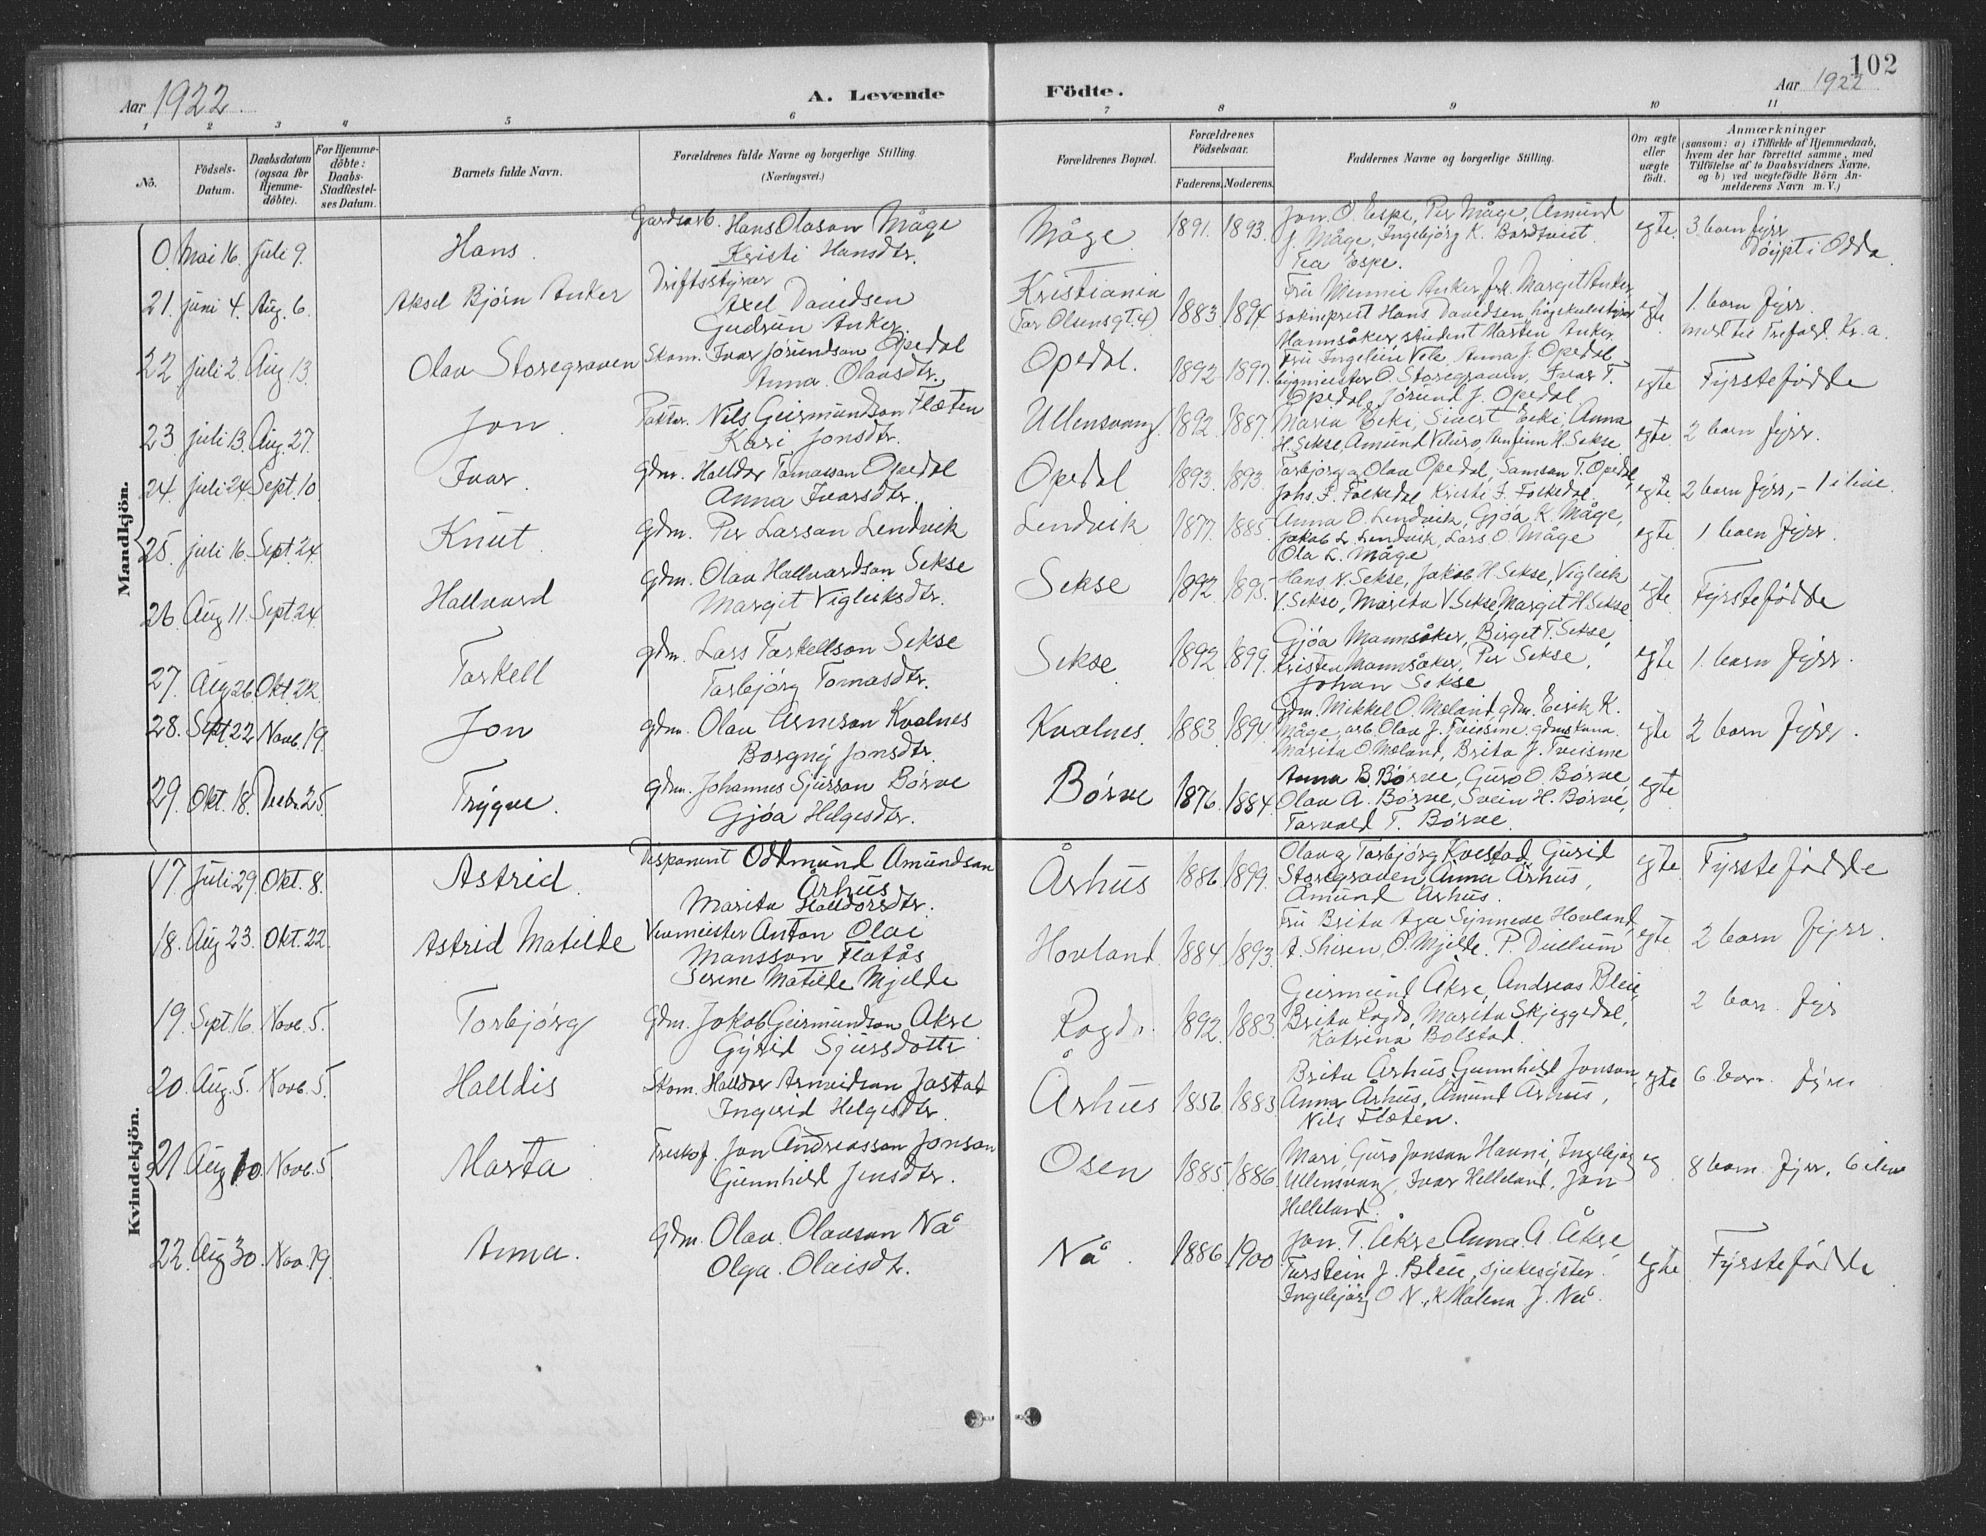 102
Aar 1922
A. Levende Födte.
Aar 1922
1 2 3 4 5 6 7 8 9 10 11
No.
Födsels-Datum.
Daabsdatum (ogsaa for Hjemme-döbte).
For Hjemme-döbte: Daabs-Stadfæstel-ses Datum.
Barnets fulde Navn.
Forældrenes fulde Navne og borgerlige Stilling.
(Næringsvei.)
Forældrenes Bopæl.
Forældrenes Födselsaar.
Faderens. Moderens.
Faddernes Navne og borgerlige Stilling.
Om ægte eller uægte födt.
Anmærkninger
(sansom: a) i Tilfælde af Hjemmedaab, hvem der har forrettet samme, med Tilföielse af to Daabsvidners Navne, og b) ved uegtefödte Börn An-melderens Navn m. V.)
Mandkjön.
0. Mai 16. Juli 9. Hans. Gardsarb. Hans Olason Måge
Kristi Hansdtr. Måge 1891. 1893. Jon O. Espe, Per Måge, Amund
J. Måge, Ingebjörg K. Bordtveit.
Espe. egte. 3 born fyrr
Döypt i Odda.
21. juni 4. Aug. 6. Aksel Bjørn Anker Driftsstyrar
Axel Davidsen
Gudrun Anker. Kristiania
(Tor Olsensgt. 4) 1883. 1894 Fru Minnie Anker, frk. Margit Anker
sokneprest Hans Davidsen, högskulestyrar
Mannsåker, student Morten Anker egte 1. born fyrr.
22 juli 2. Aug. 13. Olav Storegraven Skom. Ivar Jörundson Opedal
Anna Olavsdtr. Opedal. 1892 1897. Fru Ingeleiv Vile Anna J. Opedal
O. Storegraven, Ivar T.
Opedal, Jörund J. Opedal egte Fyrstefödde
23 juli 13. Aug. 27. Jon. Nils Geirmundson Flæten
Kari Jonsdtr. Ullensvang 1892. 1887. Maria Eeki, Sivert Eeki, Anna
H. Sekse, Amund Viluro, Arnfinn H. Sekse egte 2 born fyrr.
24. juli 24 Sept. 10 Ivar. gdm. Halldor Tomasson Opedal
Anna Ivarsdtr. Opedal 1893. 1893. Torbjörg a Olav Opedal, Samson T. Opedal,
Johs. J. Folkedal Kristi J. Folkedal egte. 2 born fyrr, - 1 i live.
25. juli 16. Sept. 24. Knut. gdm. Per Larson Lendvik Lendvik 1877. 1885. Anna O. Lendvik, Gjöa K. Måge,
Jakob L. Lendvik, Lars O. Måge
Ola L. Måge egte 1 born fyrr.
26 Aug 11. Sept 24. Hallvard gdm. Olav Hallvardson Sekse
Margit Vigleiksdtr. Sekse 1892 1895 Hans V. Sekse, Jakob H Sekse, Vigleik
V. Sekse, Marita V. Sekse, Margit H. Sekse egte Fyrstefödde
27. Aug 26. Okt 22. Torkell gdm. Lars Torkellson Sekse
Torbjörg Tomasdtr. Sekse 1892 1899. Gjöa Mannsåker, Birget T. Sekse,
Kristen Mannsåker, Per Sekse,
Johan Sekse egte 1. born fyrr.
28. Sept. 22 Novb. 19 Jon gdm. Olav Arneson Kvalnes
Borgny Jonsdtr. Kvalnes. 1883. 1894. Gdm. Mikkel O. Moland, gdm. Eirik K.
Måge, arb. Olav J. Tveisme, gdmskona
Marita O. Moland, Brita J. Tveisme egte 2 born fyrr.
29. Okt. 18. Decbr. 25. Trygve. gdm. Johannes Sjurson Börve
Gjöa Helgesdtr. Börve 1876. 1884. Anna B. Börve, Guro O. Börve
Olav A. Börve, Svein H. Börve,
Torvald T. Börve. egte
Kvindekjön.
17. juli 29. Okt. 8. Astrid. Disponent Oddmund Amundson
Århus
Marita Halldorsdtr. Århus 1886 1899. Olav og Torbjörg Kvestad, Gurid
Storegraven, Anna Århus,
Amund Århus. egte Fyrstefödde
18. Aug 23. Okt. 22. Astrid Matilde Veomeister Anton Olai
Monsson Flatås
Serine Matilde Mjelde Hovland 1884. 1893. Fru Brita Aga Synneve Hovland,
O. Mjelde. P. egte 2 born fyrr.
19. Sept. 16. Novb. 5. Torbjörg Gdm. Jakob Geirmundson Åkre
Gyrid Sjursdottr Rogde 1892. 1883. Geirmund Åkre, Andreas Bleie,
Brita Rogde, Marita Skjeggedal,
Katrina Bolstad. 2 born. fyr
20. Aug. 5. Novb. 5. Halldis Skom. Halldor Arneidson Jåstad
Ingerid Helgesdtr. Århus 1886 1883 Brita Århus, Gunnhild Jonson,
Anna Århus, Amund Århus,
Nils Flæten. egte 6 born. fyrr
21. Aug 10. Novb. 5 Marta Treskof. Jon Andreasson Jonson
Gunnhild Jensdtr. Osen 1885. 1886. Mari, Guro Jonson Hanni, Ingebjörg
Ullensvang, Ivar Helleland, Jon
Helleland. eg 8 born. fyrr. 6 ilive
22. Aug 30. Nov. 19. Anna. Gdm. Olav Olavson Nå
Olga Olaisdtr. Nå. 1886 1900 Jon. T. Åkre Anna A. Åkre,
Torstein J. Bleie, sjukesyster
Ingebjörg O. N., K Malena J. Nå. egte Fyrstefödde